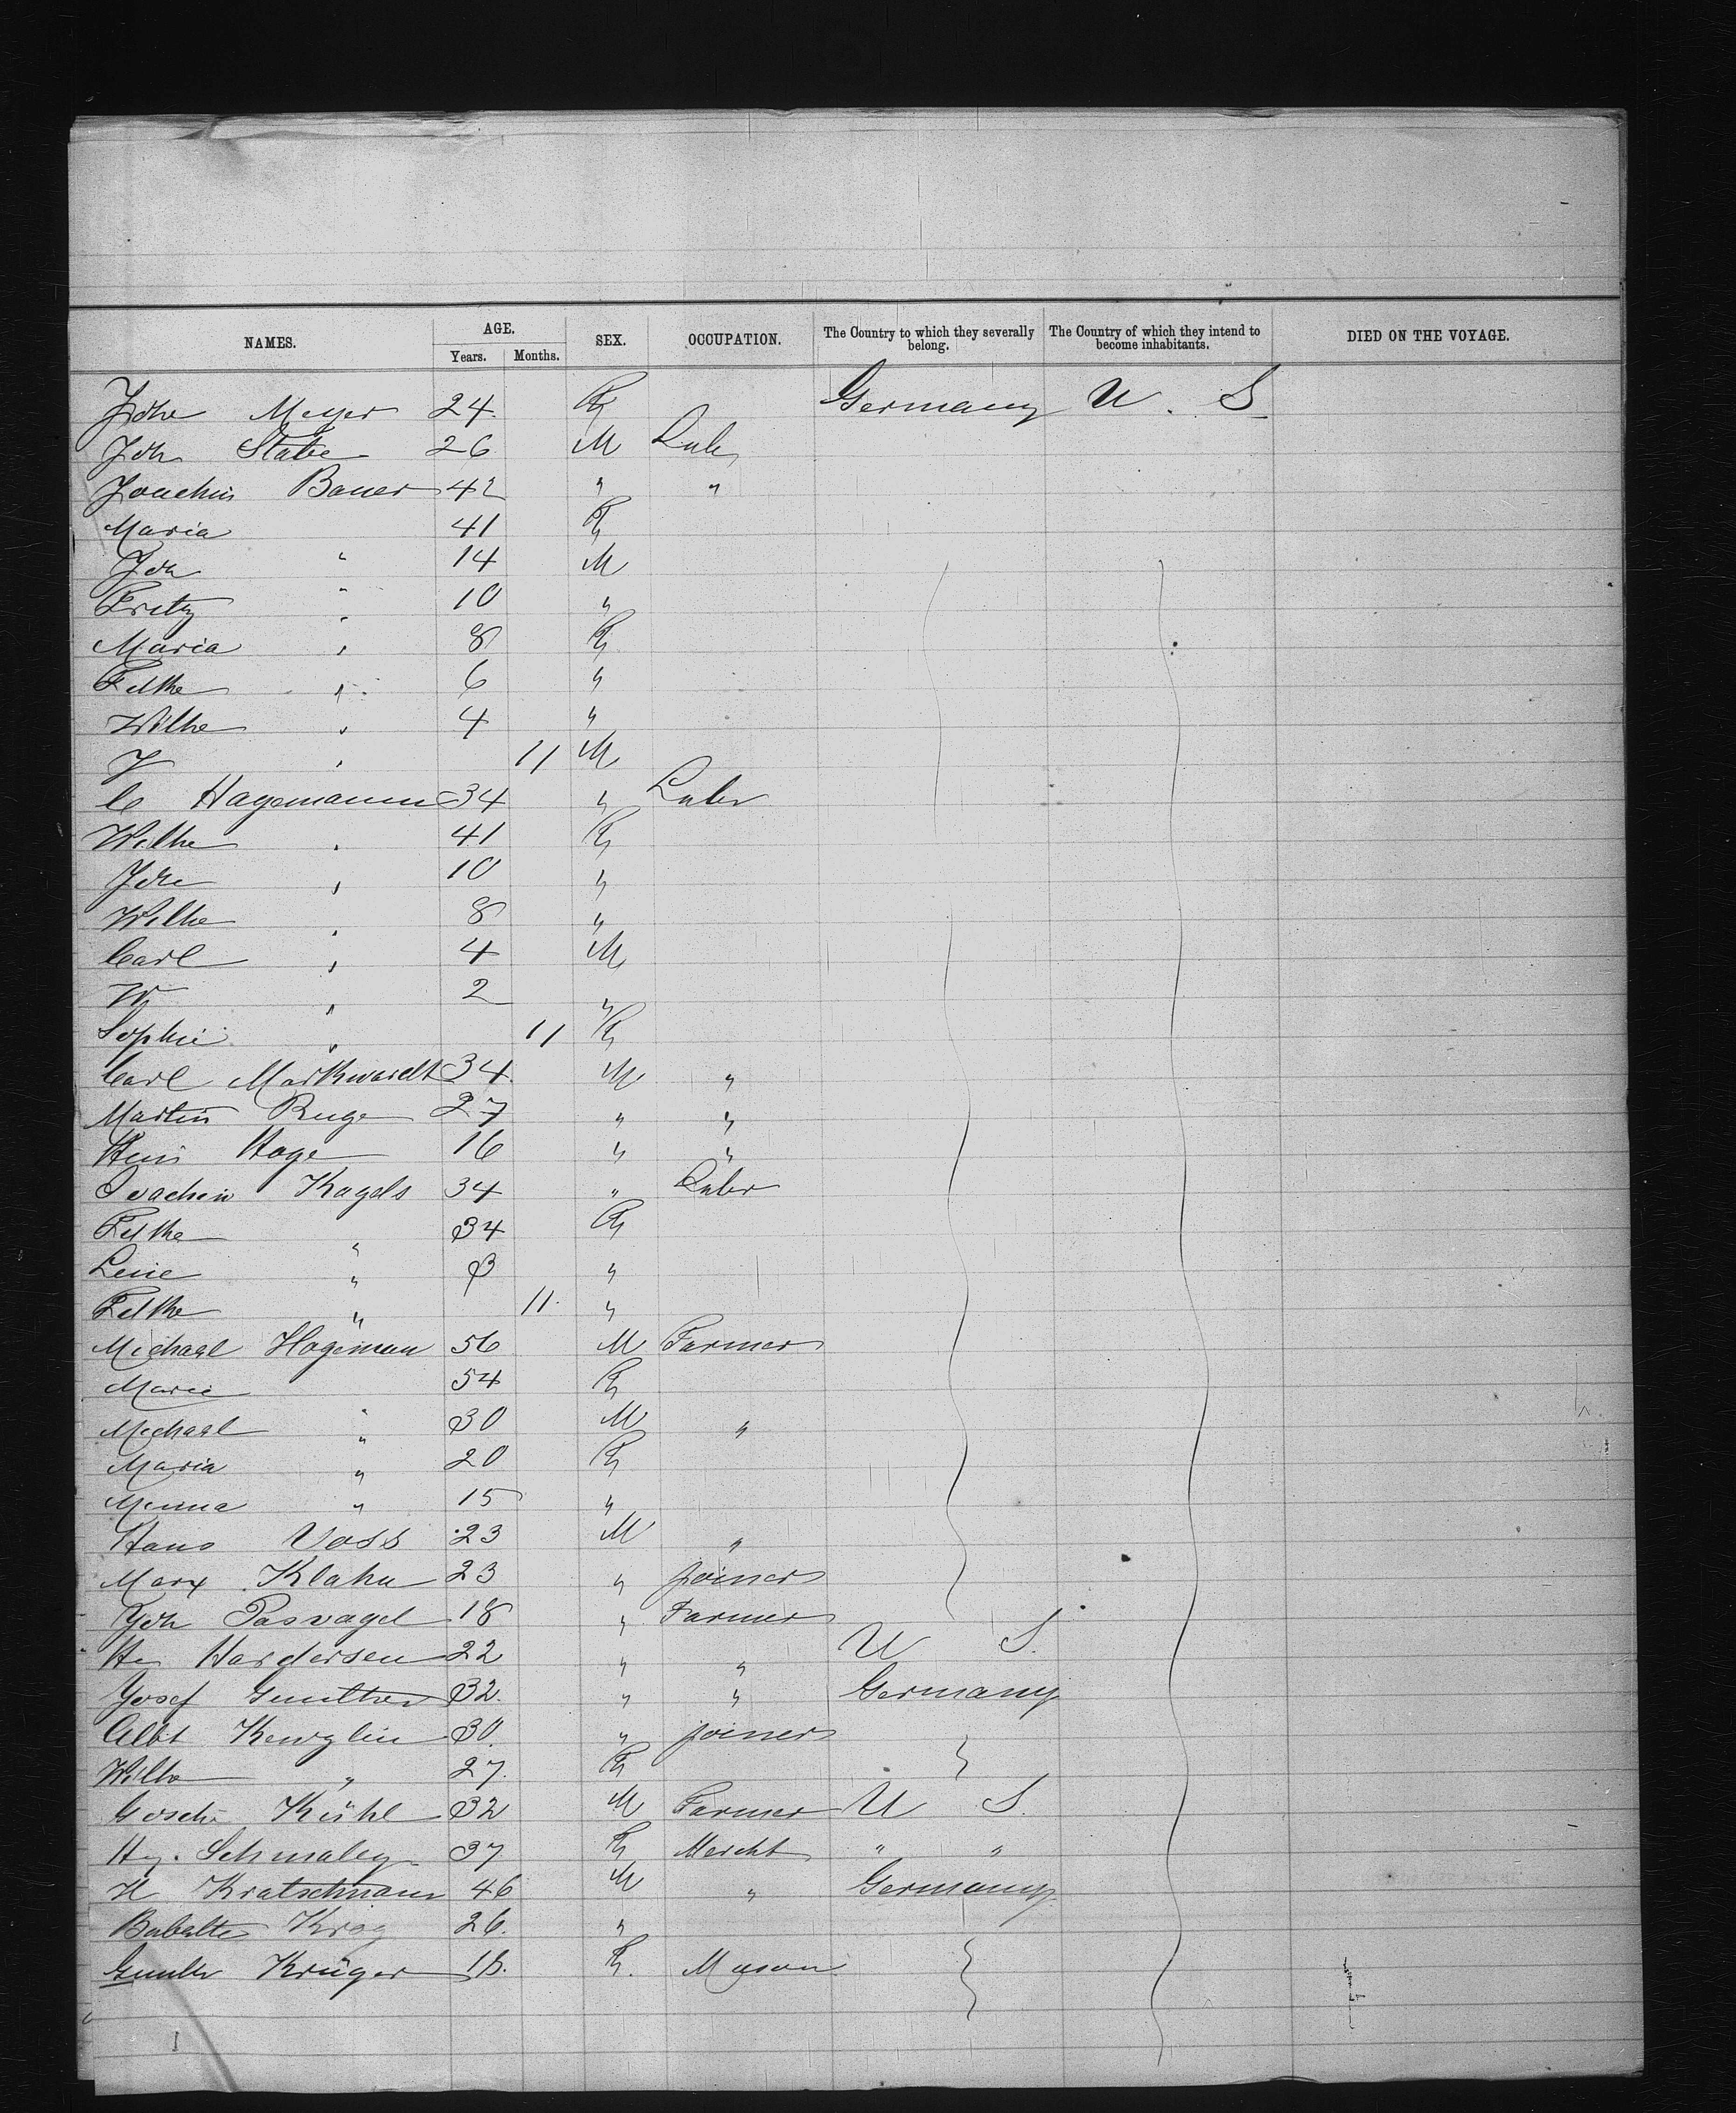 NAMES. AGE. Years. Months. SEX. OCCUPATION. The Country to which they severally belong. The Country of which they intend to become inhabitants. DIED ON THE VOYAGE.
Meyer 24 Germany U. S.
Joh Stabe 26 M
Joachim Bauer 42 " "
Maria 41
Joh " 14 M
Fritz " 10 "
Maria " 8
" 6 "
Wilhe " 4 "
J " 11 M
C Hagemann 34 " Labr
Wilhe " 41
Johe " 10 "
Wilhe " 8 "
Carl " 4 M
W " 2 "
Sophie " 11
Carl Markwardt 34 M "
Martin Ruge 27 " "
Hage 16 " "
Joachim Kagels 34 " Labr
" 34
Lene " 3 "
" 11 "
Michael Hageman 56 M Farmer
Marie " 54
Michael " 30 M "
Maria " 20
Minna " 15 "
Hans Voss 23 M "
Marx Klahn 23 " joiner
Joh Pasvagel 18 " Farmer
Hy Hardersen 22 " " U S.
Josef Gunther 32 " " Germany
Albt 30 " joiner
Wilhe " 27
Kühl 32 M Farmer U S.
Hy. Schmaley 37 Mercht " "
H Kratschmann 46 M " Germany
Babette 26 "
Krüger 18. Mason